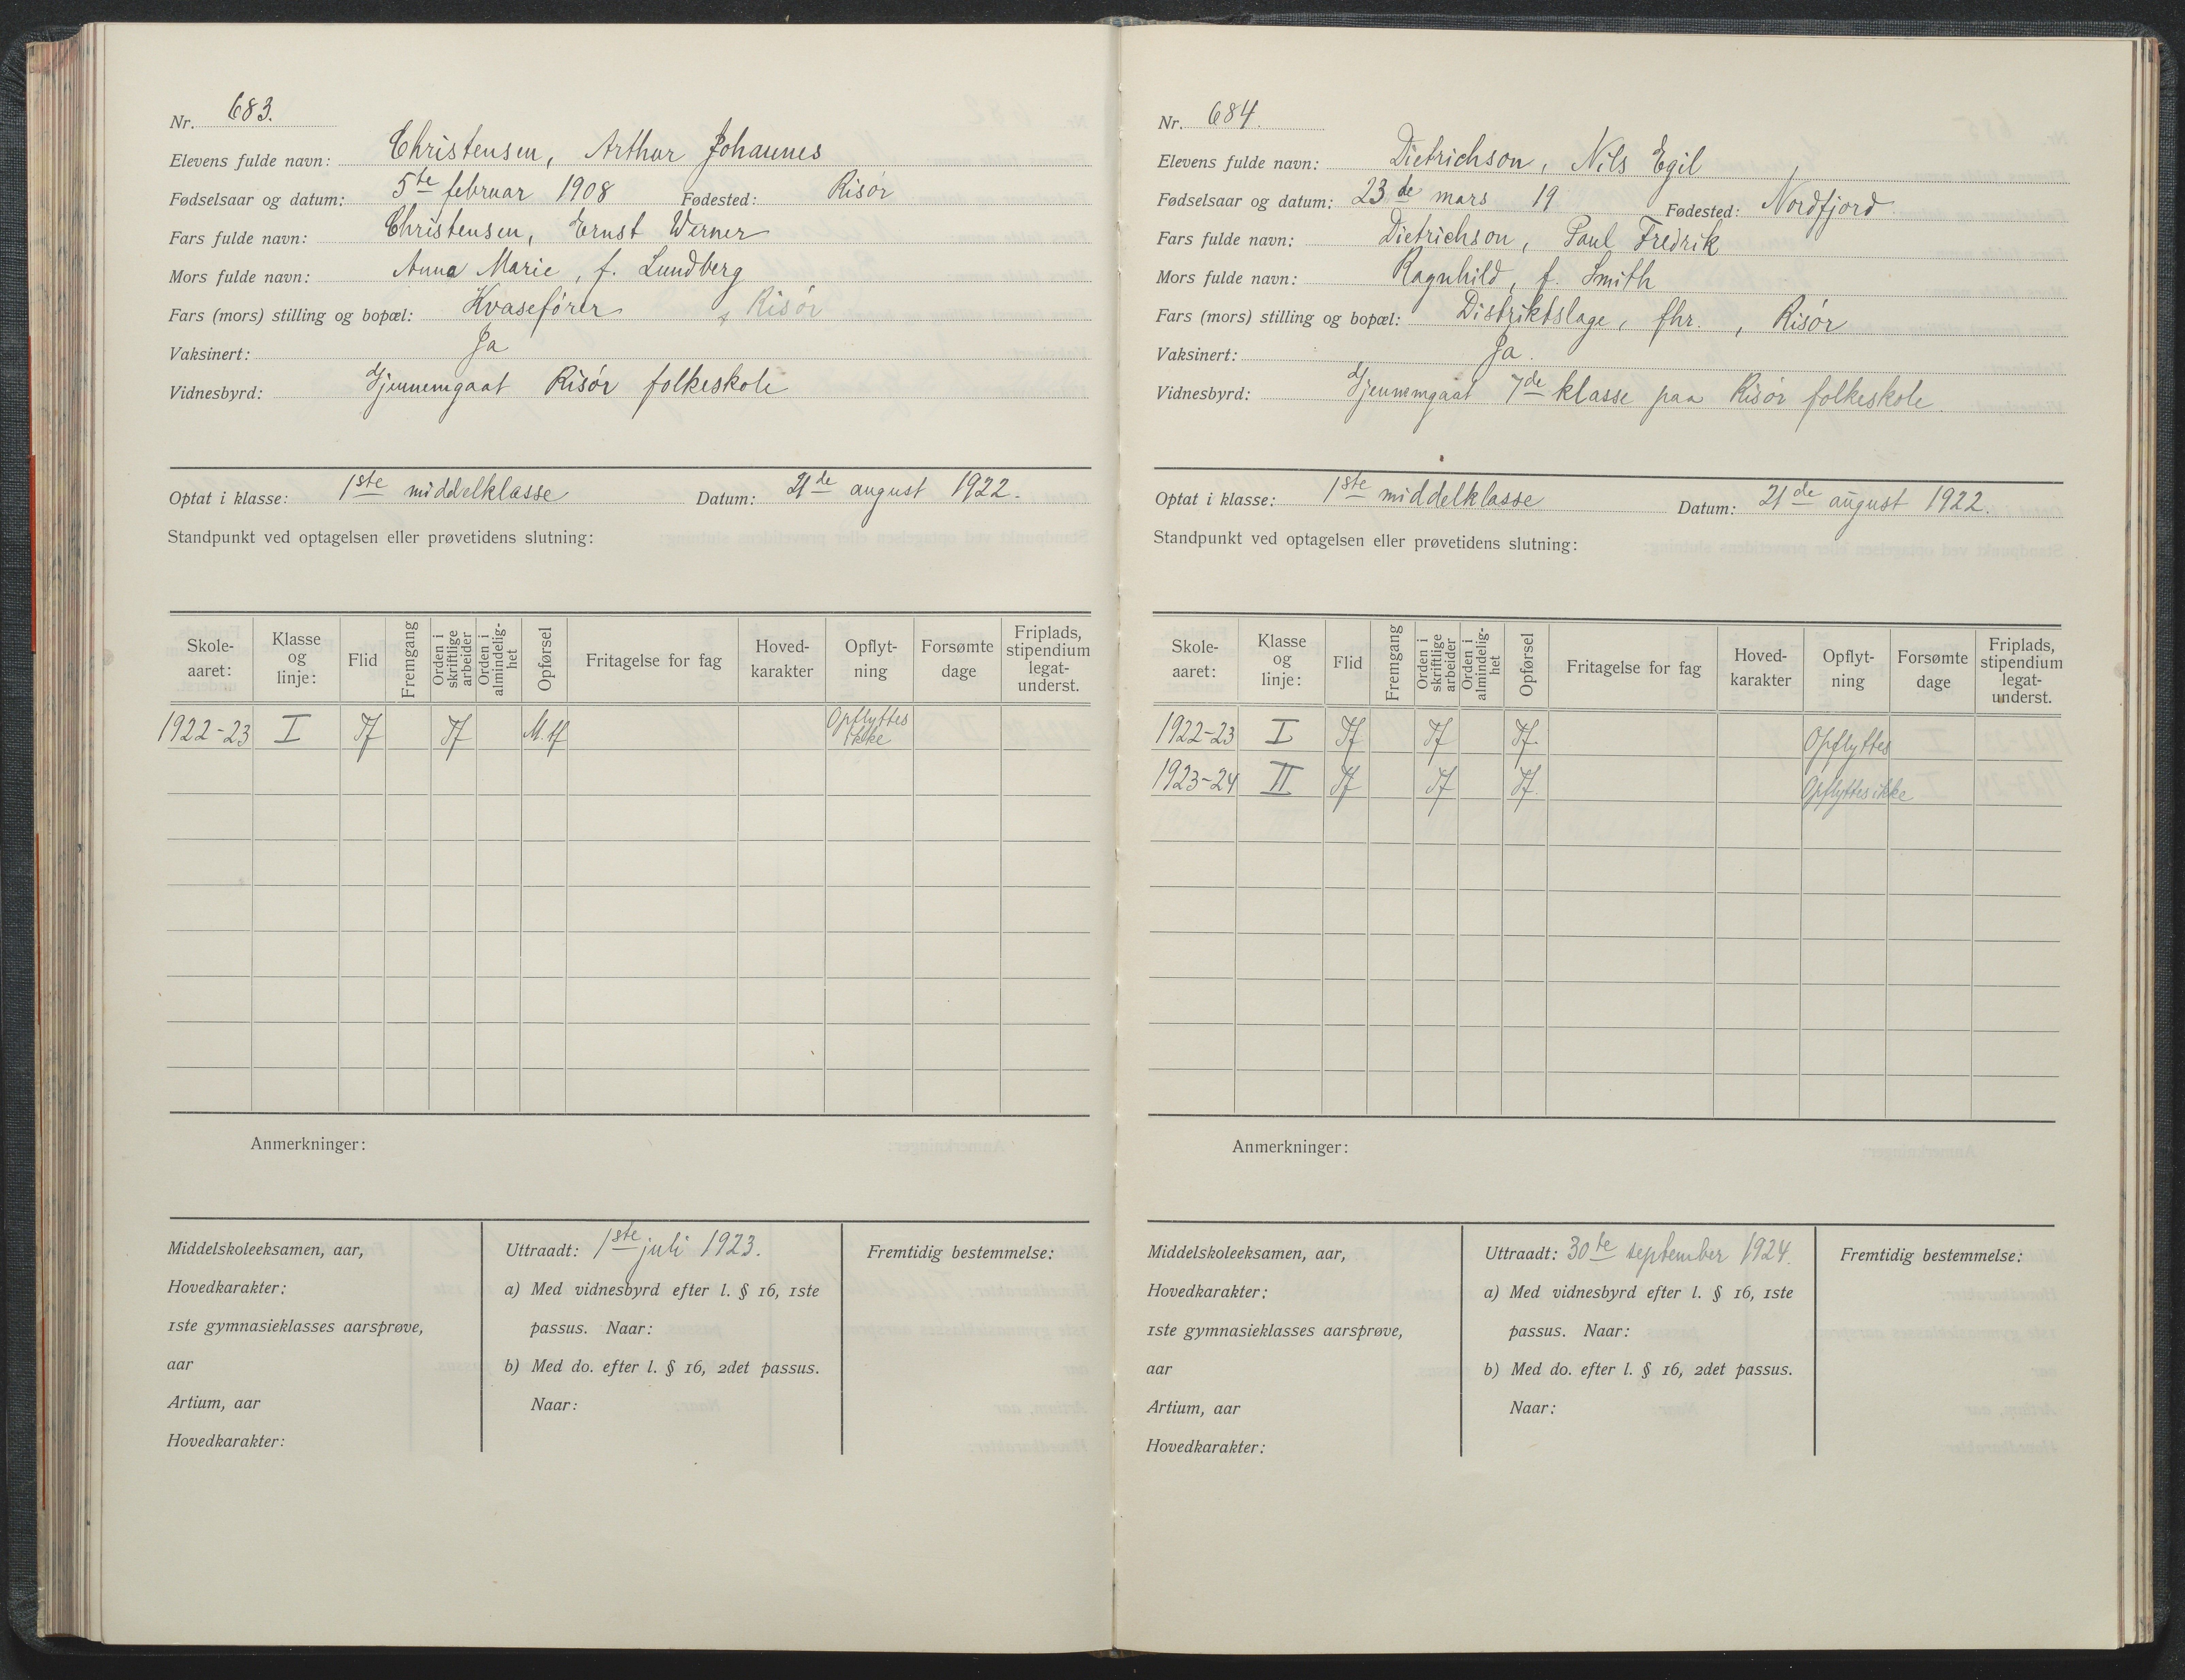 Nr. 683.
Elevens fulde navn: Christensen, Arthur Johannes
Fødselsaar og datum: 5te februar 1908 Fødested: Risør
Fars fulde navn: Christensen, Ernst Werner
Mors fulde navn: Anna Marie, f. Lundberg
Fars (mors) stilling og bopæl: Kvasefører, Risør
Vaksinert: Ja
Vidnesbyrd: Gjennemgaat Risør folkeskole
Optat i klasse: 1ste middelklasse Datum: 21de august 1922.
Standpunkt ved optagelsen eller prøvetidens slutning:
Skole-aaret: Klasse og linje: Flid Fremgang Orden i skriftlige arbeider Orden i almindelig-het Opførsel Fritagelse for fag Hoved-karakter Opflyt-ning Forsømte dage Friplads, stipendium legat-underst.
1922-23 I Tf Tf M.tf Opflyttes ikke
Anmerkninger:
Middelskoleeksamen, aar,
Hovedkarakter:
1ste gymnasieklasses aarsprøve,
aar
Artium, aar
Hovedkarakter:
Uttraadt: 1ste juli 1923.
a) Med vidnesbyrd efter l. § 16, 1ste
passus. Naar:
b) Med do. efter l. § 16, 2det passus.
Naar:
Fremtidig bestemmelse:
Nr. 684.
Elevens fulde navn: Dietrichson, Nils Egil
Fødselsaar og datum: 23de mars 19 Fødested: Nordfjord
Fars fulde navn: Dietrichson, Paul Fredrik
Mors fulde navn: Ragnhild, f. Smith
Fars (mors) stilling og bopæl: Distriktslage, fhr., Risør
Vaksinert: Ja.
Vidnesbyrd: Gjennemgaat 7de klasse paa Risør folkeskole.
Optat i klasse: 1ste middelklasse Datum: 21de august 1922.
Standpunkt ved optagelsen eller prøvetidens slutning:
Skole-aaret: Klasse og linje: Flid Fremgang Orden i skriftlige arbeider Orden i almindelig-het Opførsel Fritagelse for fag Hoved-karakter Opflyt-ning Forsømte dage Friplads, stipendium legat-underst.
1922-23 I Tf Tf Tf. Opflyttes
1923-24 II Tf Tf Tf. Opflyttes ikke
Anmerkninger:
Middelskoleeksamen, aar,
Hovedkarakter:
1ste gymnasieklasses aarsprøve,
aar
Artium, aar
Hovedkarakter:
Uttraadt: 30te september 1924.
a) Med vidnesbyrd efter l. § 16, 1ste
passus. Naar:
b) Med do. efter l. § 16, 2det passus.
Naar:
Fremtidig bestemmelse: